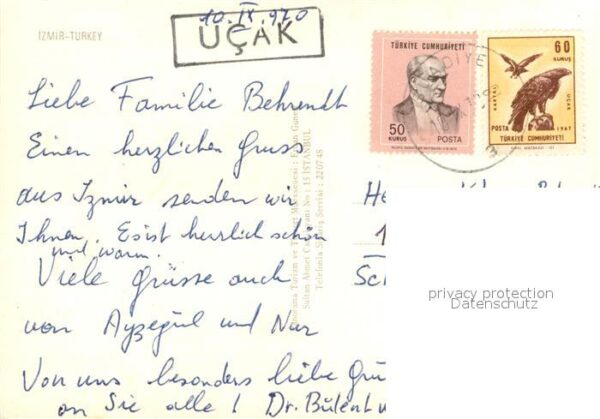 10. IX. 970
İZMİR-TURKEY
UÇAK
TÜRKİYE CUMHURİYETİ
50
KURUŞ
POSTA
60
KURUŞ
KARTAL
UÇAK
POSTA 1967
TÜRKİYE CUMHURİYETİ
Liebe Familie Behrendt
Einen herzlichen Gruss
aus Izmir senden wir
Ihnen. Es ist herrlich schön
und warm.
Viele Grüsse auch
von Ayşegül und Nur
Von uns besonders liebe Grü
an Sie alle! Dr. Bülent u
Sultan Ahmet
No : 15 İSTANBUL
Telefonla Sipariş Servisi : 220748
He
1
Sc
privacy protection
Datenschutz